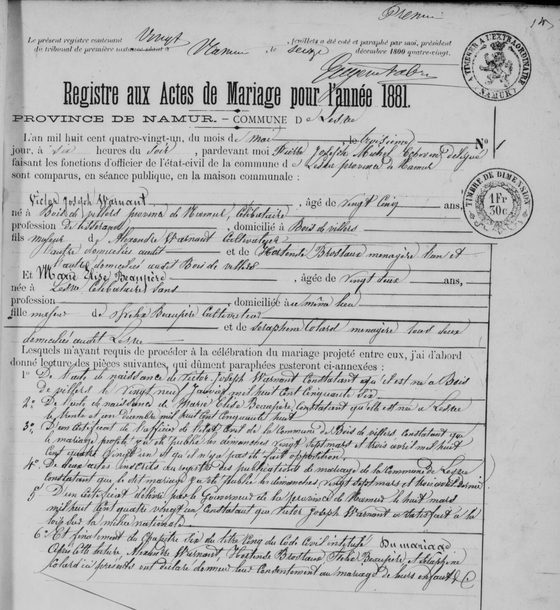 Premier
Le présent registre contenant vingt feuillets a été coté et paraphé par moi, président
du tribunal de première instance séant à Namur le seize décembre 1880 quatre-vingt.
Registre aux Actes de Mariage pour l'année 1881.
PROVINCE DE NAMUR. — COMMUNE D
L'an mil huit cent quatre-vingt-un, du mois de mai, le troisième
N° 1
jour, à six heures du soir, pardevant moi Joseph
faisant les fonctions d'officier de l'état-civil de la commune de province de Namur
sont comparus, en séance publique, en la maison communale :
Victor Joseph Warnant, âgé de vingt cinq ans,
né à Bois de villers province de Namur, célibataire
profession de, domicilié à Bois de villers
fils majeur de Alexandre Warnant cultivateur
et Hortense Brostaux menagère l'un et
l'autre domiciliés audit Bois de villers
Et Marie Elise Beaupère, âgée de vingt deux ans,
née à célibataire sans
profession, domiciliée au même lieu
fille majeure de Beaupère Cultivateur
et Séraphine Colard menagère tous deux
domiciliés audit
Lesquels m'ayant requis de procéder à la célébration du mariage projeté entre eux, j'ai d'abord
donné lecture des pièces suivantes, qui dûment paraphées resteront ci-annexées :
1° De l'acte de naissance de Victor Joseph Warnant constatant qu'il est né à Bois
de villers le vingt neuf mil huit cent cinquante six
2° De l'acte de naissance de Marie Elise Beaupère, constatant qu'elle est née à
le trente et un décembre mil huit cent cinquante huit
3° D'un certificat de l'officier de l'état civil de la Commune de Bois de villers constatant que
le mariage projeté y a été publié les dimanches vingt sept mars et trois avril mil huit
cent quatre vingt un et qu'il n'y a pas été fait opposition
4° De deux actes inscrits au registre des publications de mariage de la Commune de
constatant que le dit mariage y a été publié les dimanches vingt sept mars et trois avril
5° D'un certificat délivré par le Gouverneur de la province de Namur le huit mars
mil huit cent quatre vingt un constatant que Victor Joseph Warnant a satisfait à la
loi sur la milice nationale
6° Et finalement du Chapitre six du titre cinq du Code Civil intitulé Du mariage
Après cette lecture, Alexandre Warnant, Hortense Brostaux, Beaupère et Séraphine
Colard ici présents ont déclaré donner leur consentement au mariage de leurs enfants &C
TIMBRE A L'EXTRAORDINAIRE
NAMUR
TIMBRE DE DIMENSION
1Fr
30c